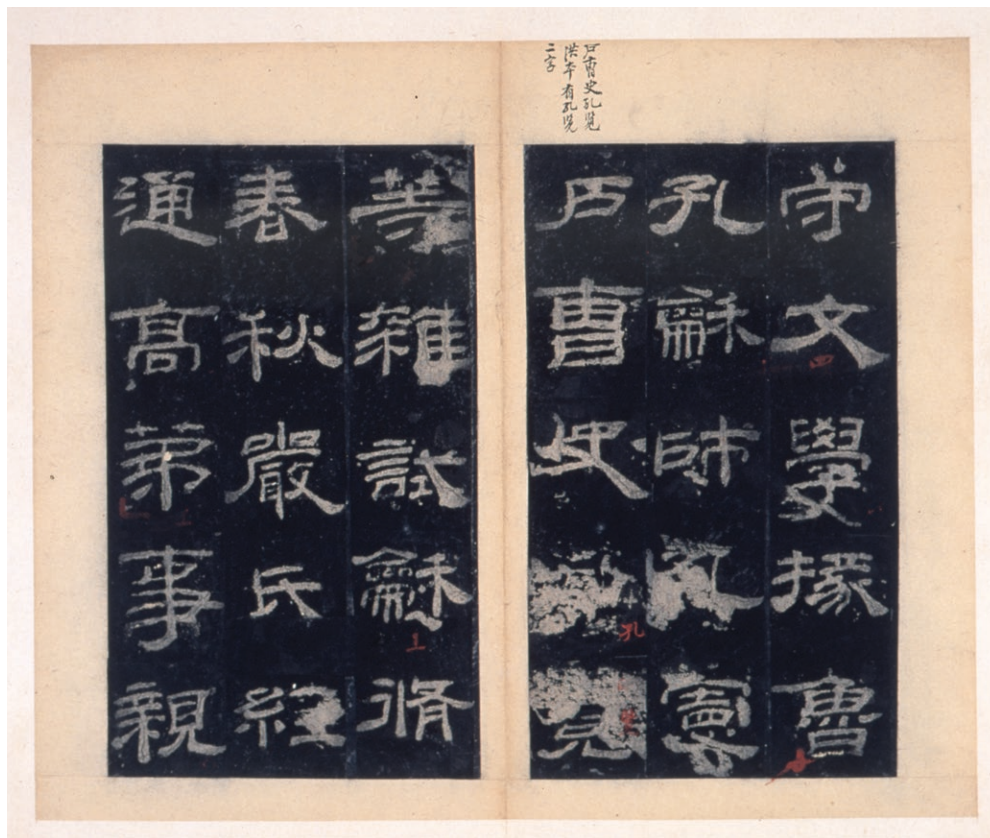 戶曹史孔覽
洪本有孔覽
二字
守文學掾魯
孔龢師孔憲
戶曹史孔覽
孔
等雜試龢脩
春秋嚴氏經
通高第事親